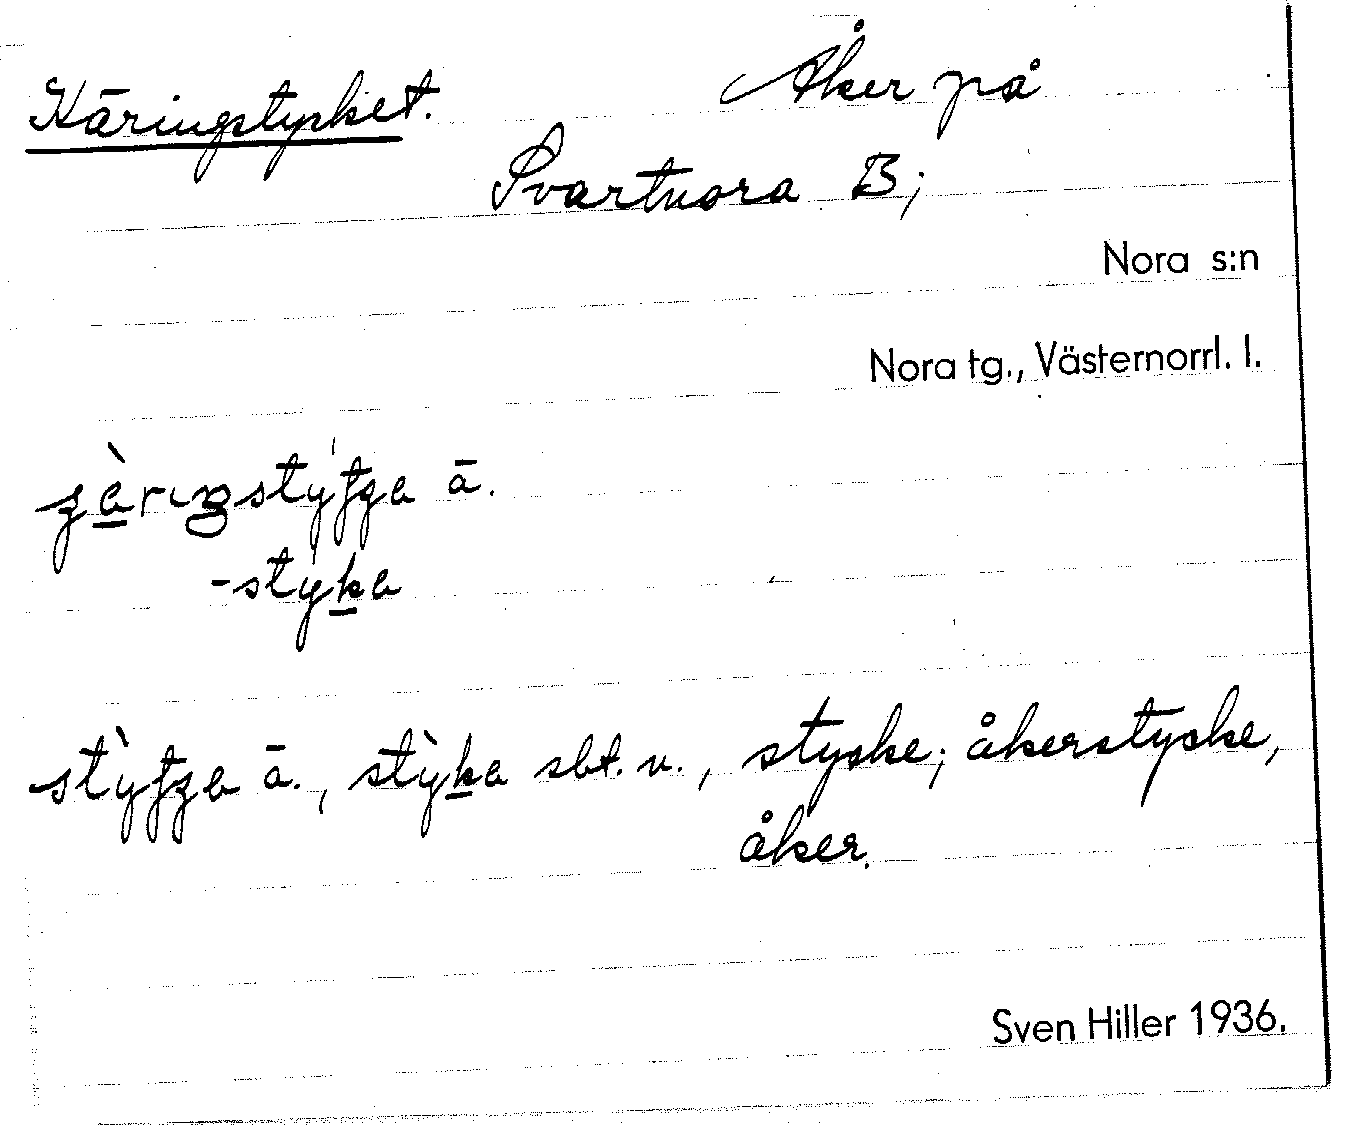 Käringstycket. Åker på
Svartnora B;
Nora s:n
Nora tg., Västernorrl. l.
ā.
-styka
ā., styka sbt. n., stycke; åkerstycke,
åker.
Sven Hiller 1936.